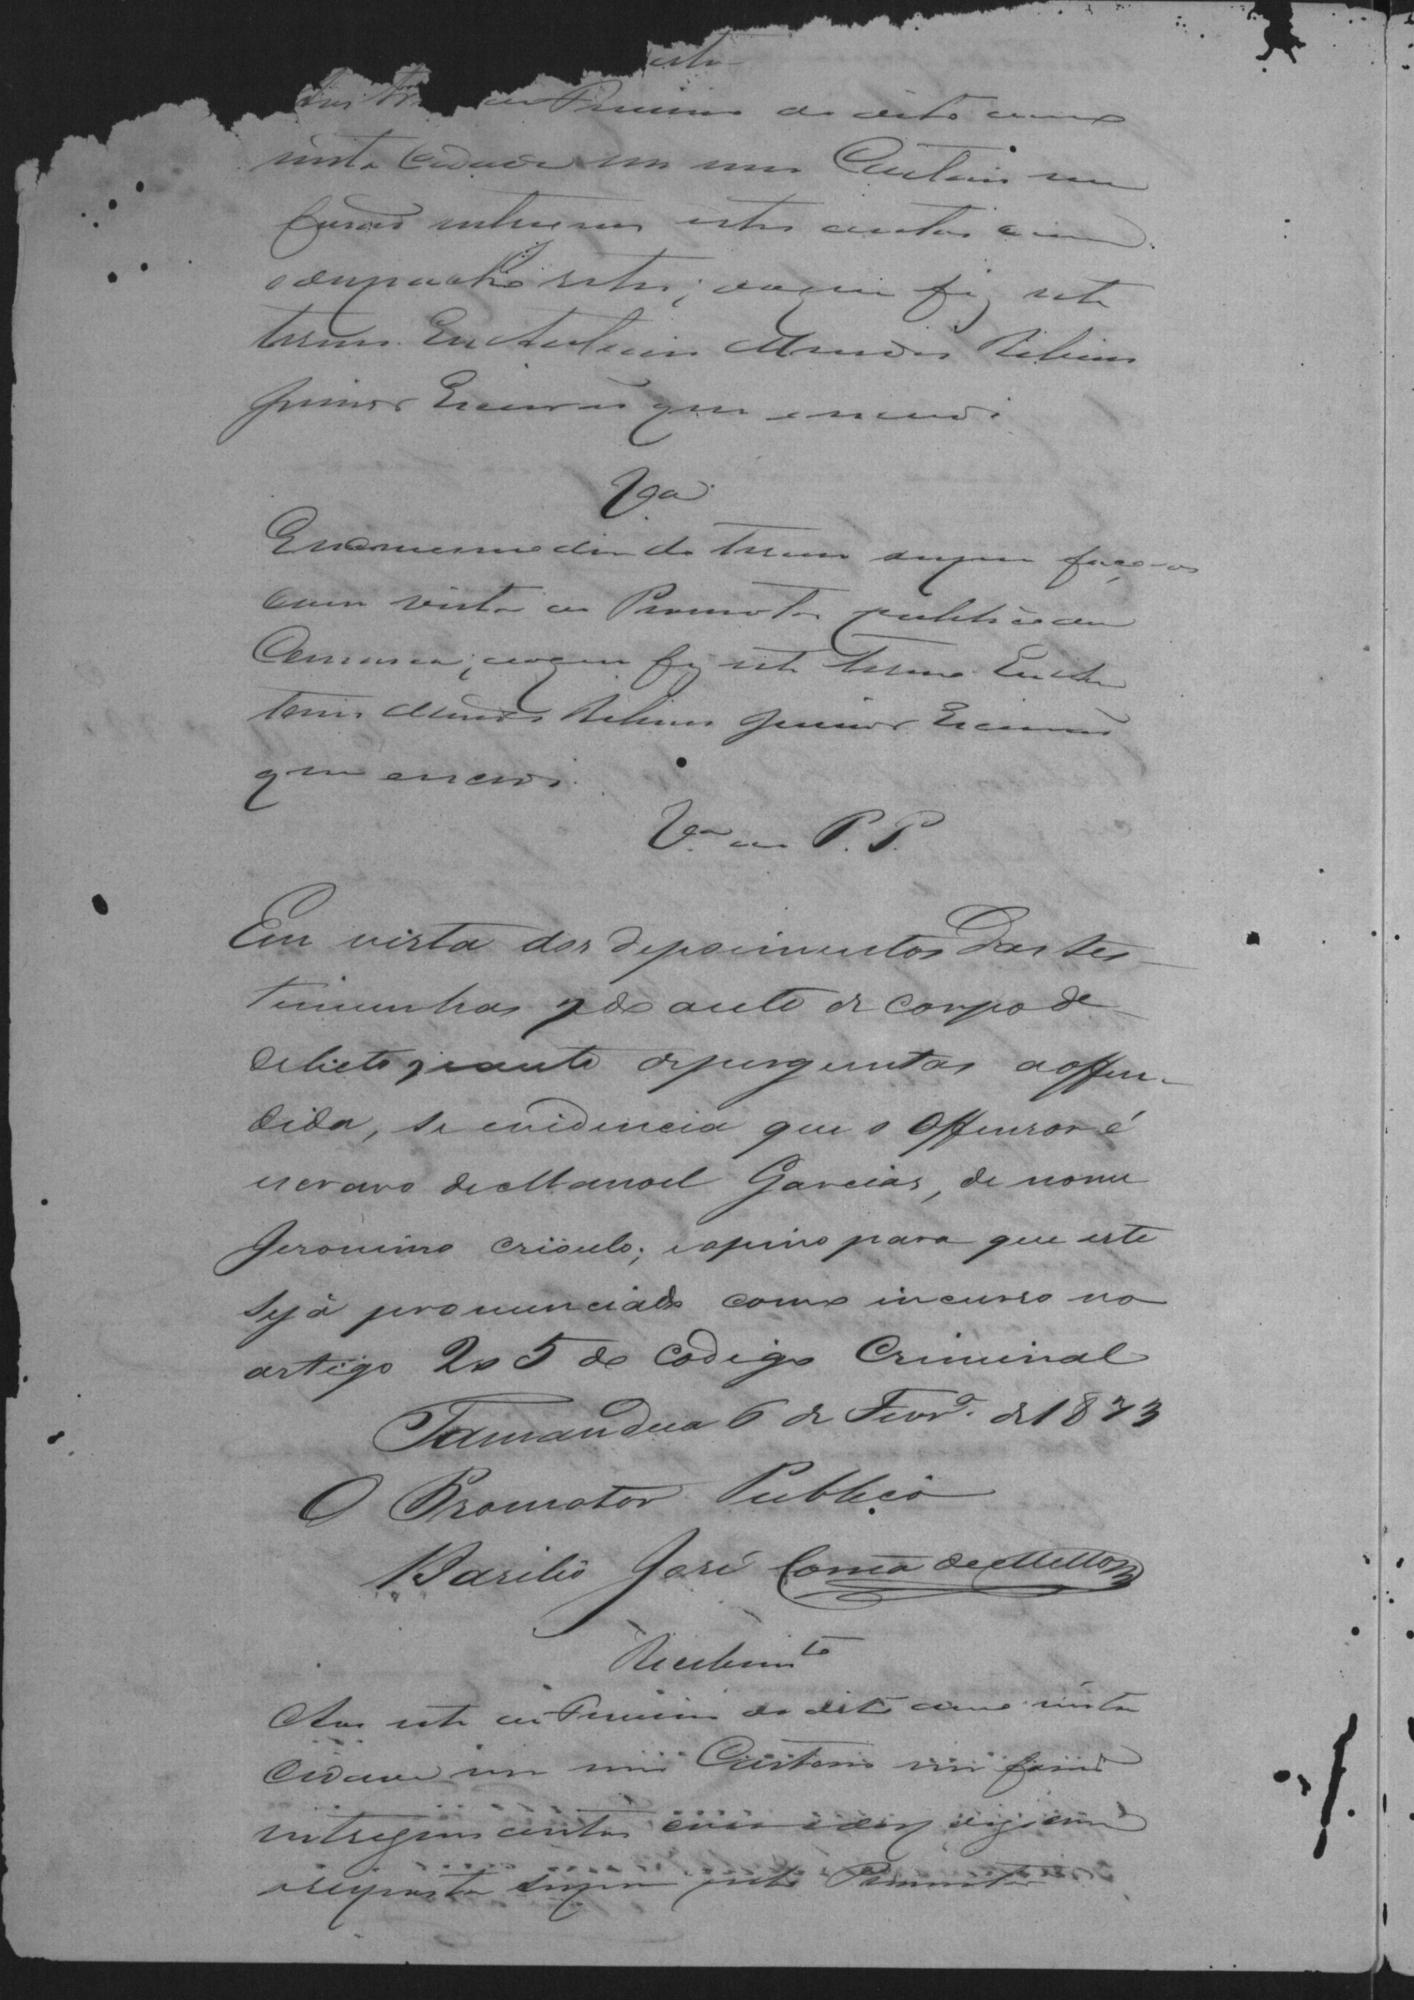 de Fevereiro do dito anno
nesta Cidade em meu Cartorio me
forão entregues estes autos com
o despacho retro; do que fiz este
termo. Eu Antonio Mendes Ribeiro
Junior Escrivão que escrevi.
V.a
E no mesmo dia do termo supra faço-os
com vista ao Promotor publico da
Comarca; do que fiz este termo. Eu An
tonio Mendes Ribeiro Junior Escrivão
que escrevi.
V.a ao P. P.
Em vista dos depoimentos das tes-
timunhas, e do auto de corpo de
delicto e auto de perguntas a offen-
dida, se evidencia que o offensor é
escravo de Manoel Garcias, de nome
Jeronimo crioulo; e opino para que este
sejá pronunciado como incurso no
artigo 205 do Codigo Criminal
Tamandua 6 de Fevr.o de 1873
O Promotor Publico
Basilio José Corrêa de Mello
Recebim.to
Aos sete de Fevereiro do dito anno nesta
Cidade em meu Cartorio me forão
entregues estes autos com
a resposta supra pelo Promotor